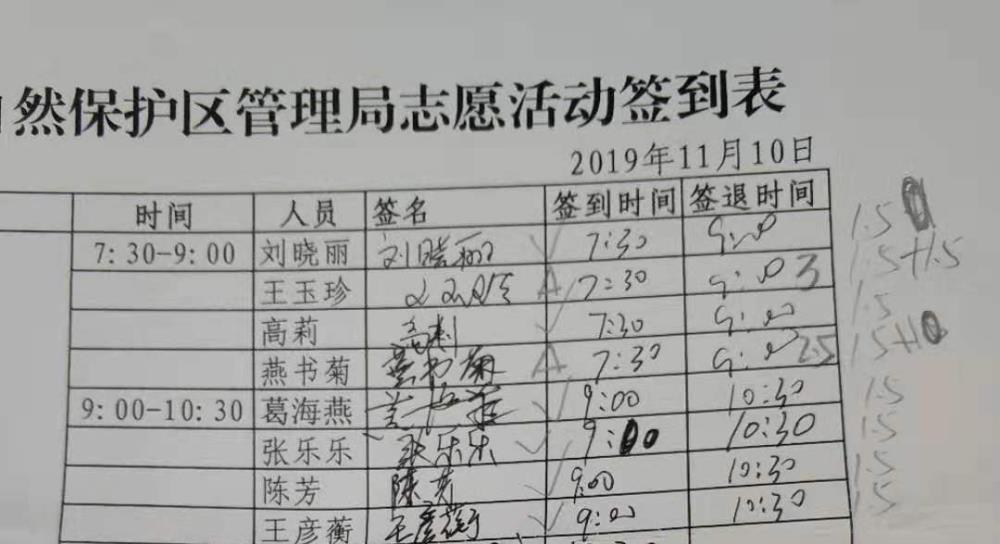 然保护区管理局志愿活动签到表
2019年11月10日
时间 人员 签名 签到时间 签退时间
7:30-9:00 刘晓丽 刘晓丽 7:30 9:00 1.5
王玉珍 王玉珍 A 7:30 9:00 3 1.5+1.5
高莉 高莉 7:30 9:00 1.5
燕书菊 燕书菊 A 7:30 9:00 2.5 1.5+1.0
9:00-10:30 葛海燕 9:00 10:30 1.5
张乐乐 张乐乐 9:00 10:30 1.5
陈芳 陈芳 9:00 10:30 1.5
王彦蘅 王彦蘅 9:00 10:30 1.5